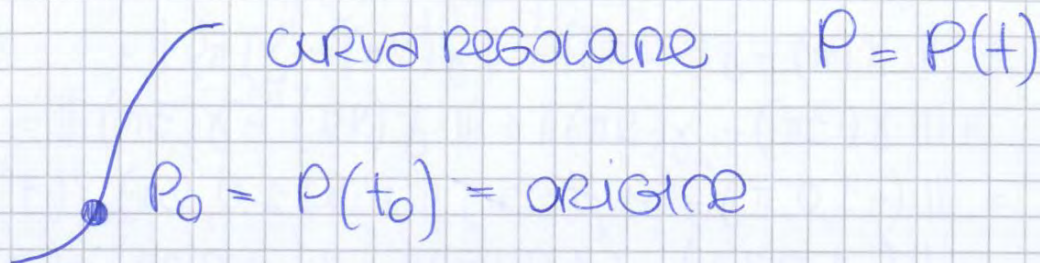 CURVA REGOLARE P = P(t)
P₀ = P(t₀) = ORIGINE